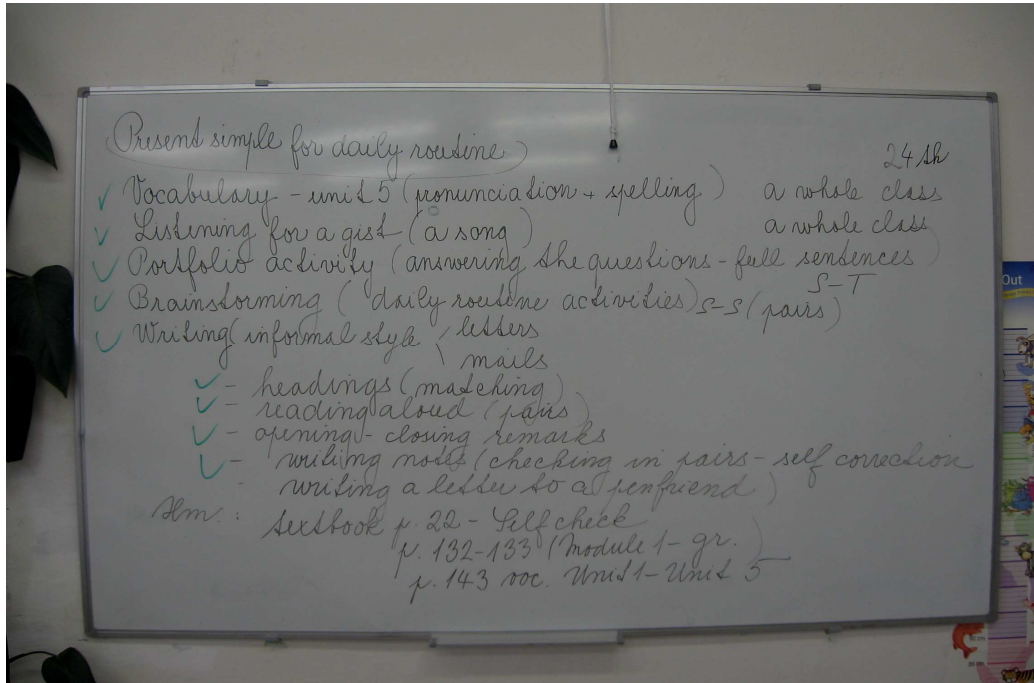 Present simple for daily routine
24th
Vocabulary - unit 5 (pronunciation + spelling) a whole class
Listening for a gist (a song) a whole class
Portfolio activity (answering the questions - full sentences)
S-T
Brainstorming (daily routine activities) S-S (pairs)
Writing (informal style / letters
\ mails
- headings (matching)
- reading aloud (pairs)
- opening - closing remarks
- writing notes (checking in pairs - self correction
- writing a letter to a penfriend)
Hm.: textbook p. 22 - Self check
p. 132-133 (Module 1 - gr.)
p. 143 voc. Unit 1 - Unit 5
Out